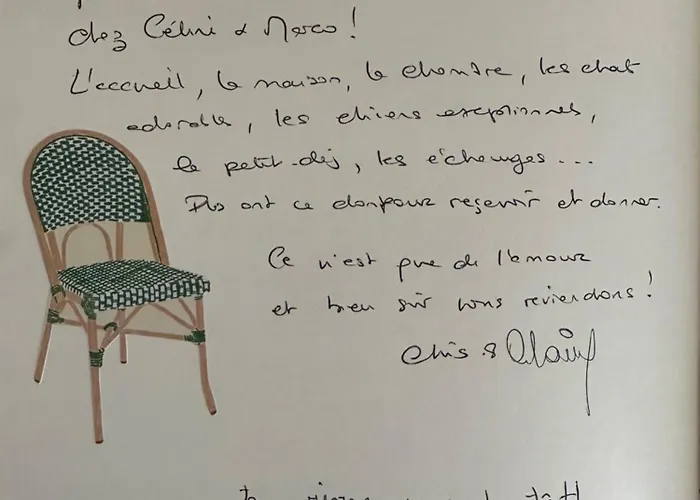 chez Céline & Marco !
L'accueil, la maison, la chambre, les chats
adorables, les chiens exceptionnels,
le petit-déj, les échanges...
Ils ont ce don pour recevoir et donner.
Ce n'est que de l'amour
et bien sûr nous reviendrons !
Chris & Alain